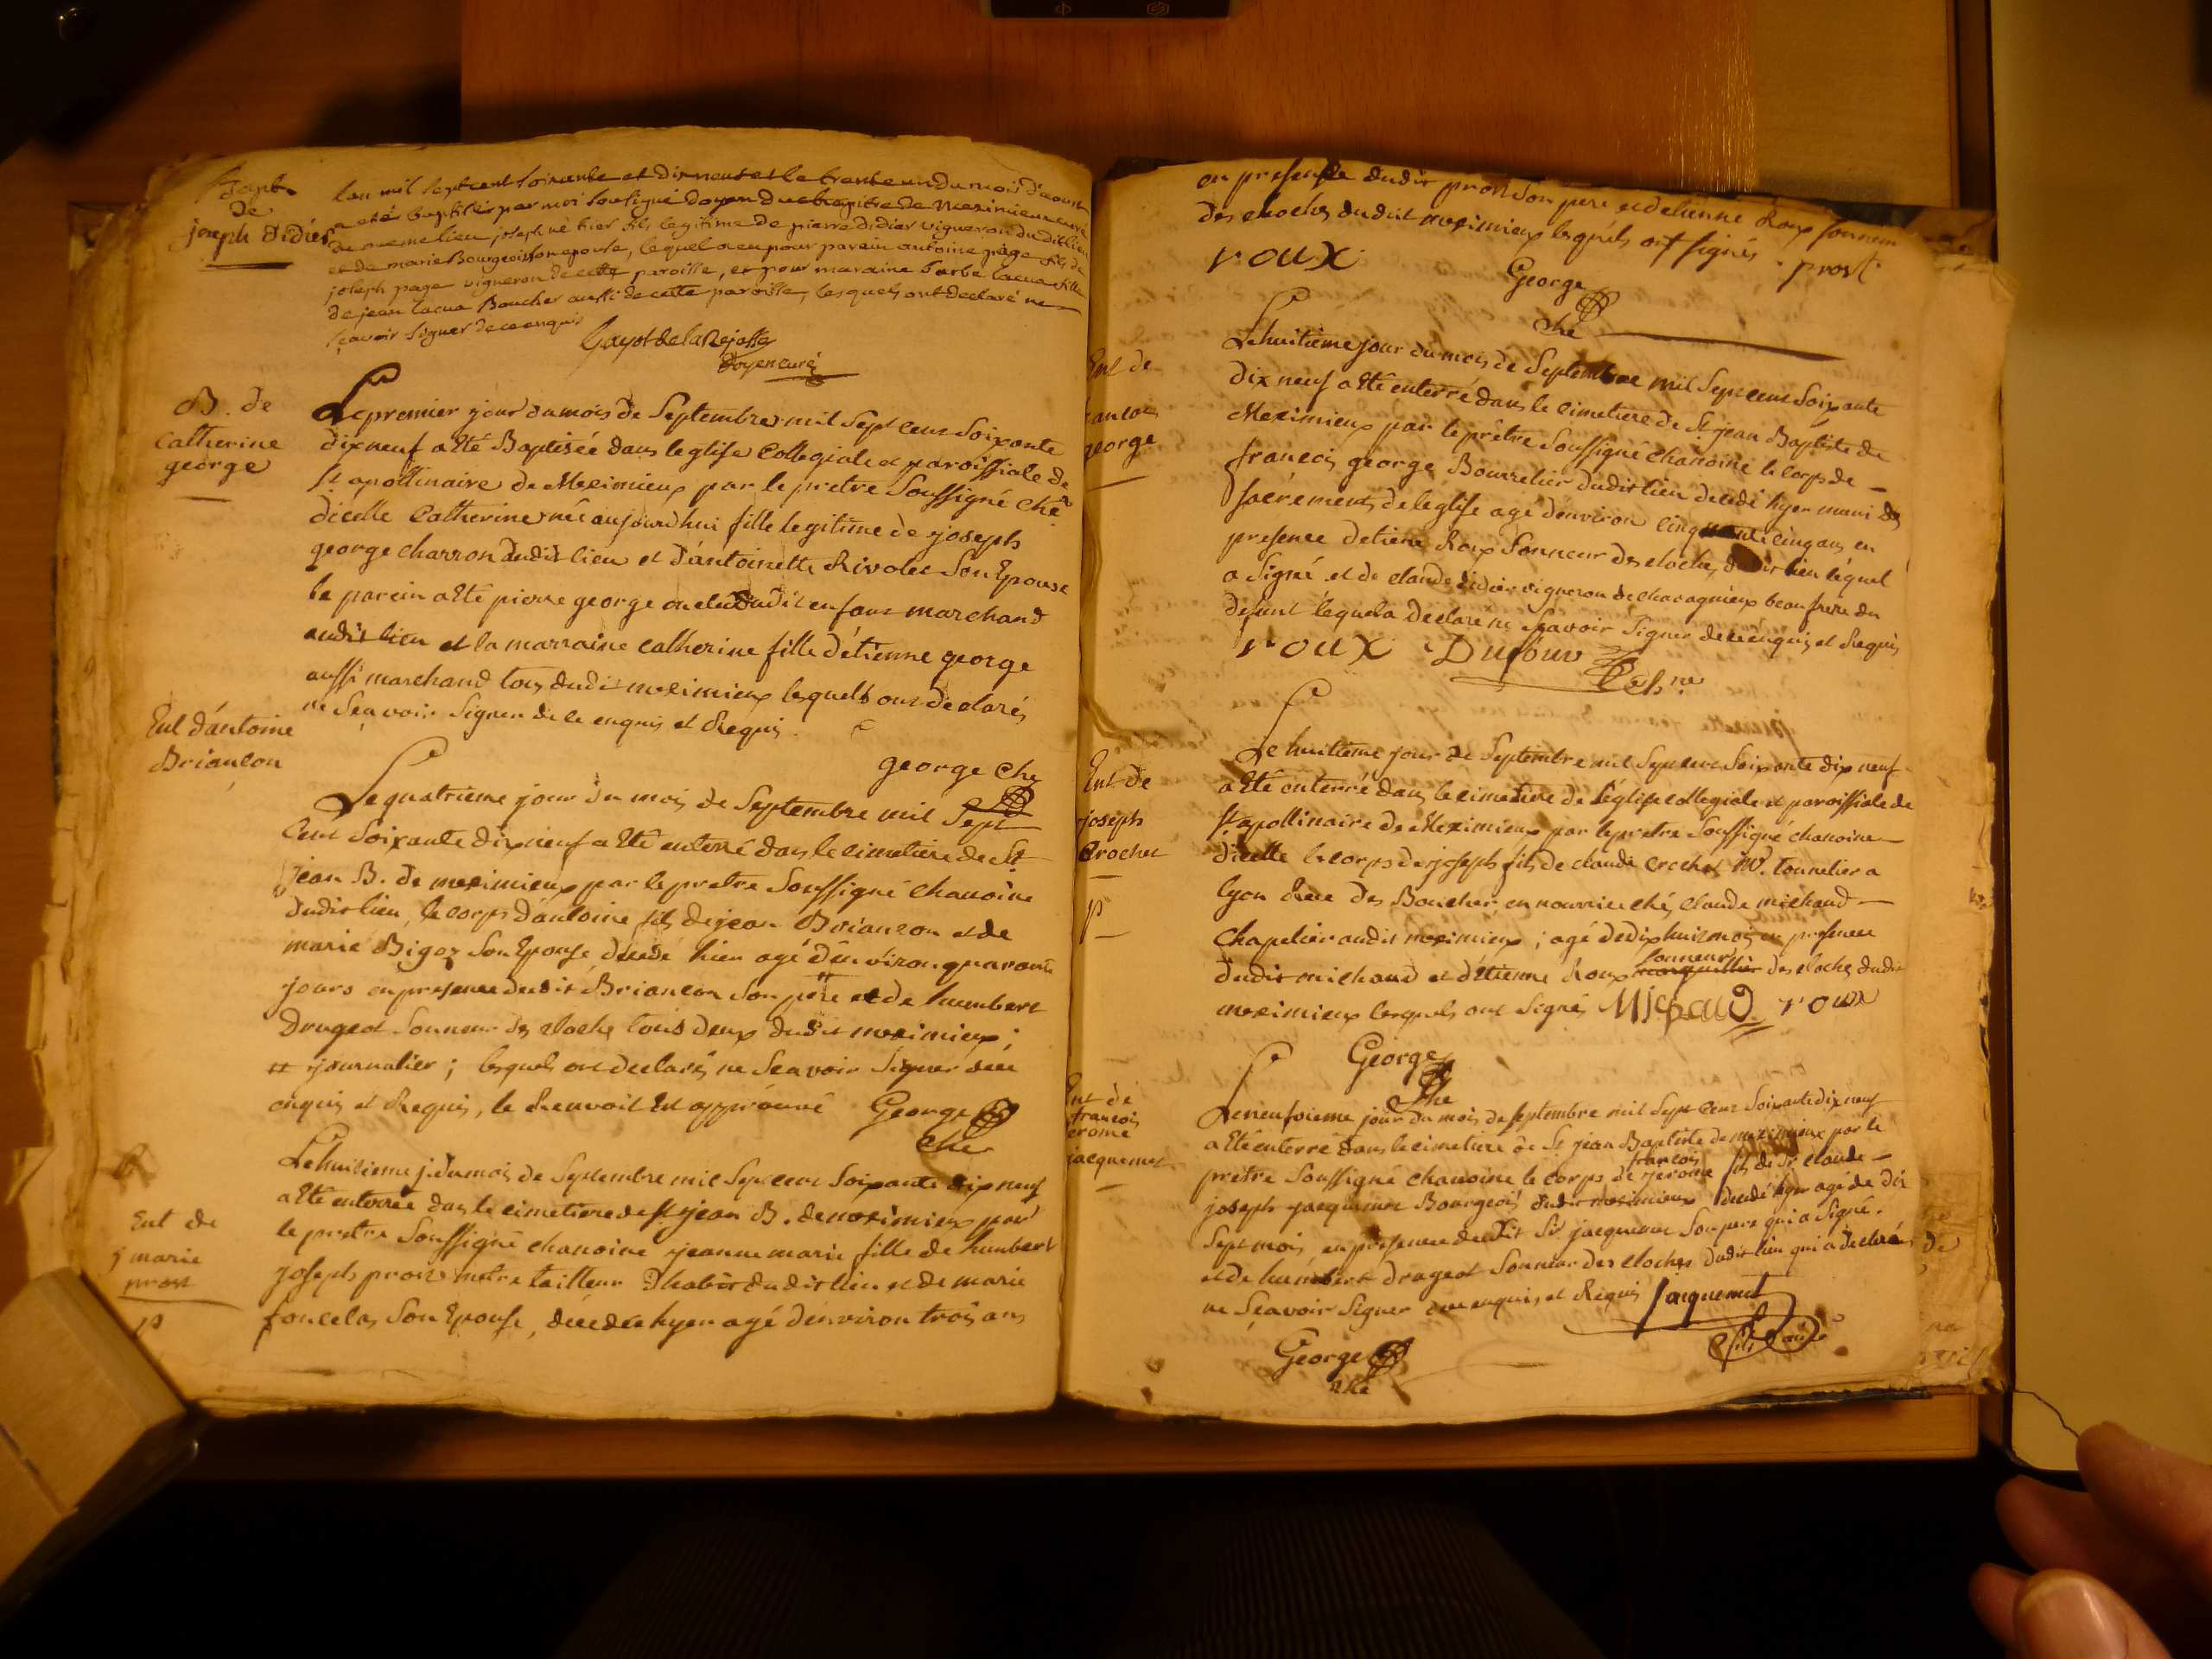 Bapt.
de
joseph Didier
lan mil sept cent soixante et dix neuf et le trente un du mois d'aoust
a eté baptisé par moi soussigné doyen du chapitre de Meximieux curé
du meme lieu joseph né hier fils legitime de pierre didier vigneron dudit lieu
et de marie Bourgeois son epouse, lequel a eu pour parein antoine page fils de
joseph page vigneron de cette paroisse, et pour maraine barbe lacua fille
de jean lacua Boucher aussi de cette paroisse, lesquels ont declaré ne
sçavoir signer de ce enquis
Gayot de la Rejasse
Doyen curé
B. de
Catherine
george
Le premier jour du mois de Septembre mil Sept cent Soixante
dix neuf a Eté Baptisée dans leglise Collegiale et paroissiale de
st apollinaire de Meximieux par le pretre Soussigné chne
dicelle Catherine née aujourdhui fille legitime de joseph
george charron dudit lieu et d'antoinette Rivolet Son Epouse
le parein a Eté pierre george oncle dudit enfant marchand
audit lieu et la marraine catherine fille d'étienne george
aussi marchand tous dudit meximieux lesquels ont declarés
ne Sçavoir signer de ce enquis et Requis.
george che
Ent d'antoine
Briancon
Le quatrieme jour du mois de Septembre mil Sept
Cent Soixante dix neuf a Eté enterré dans le cimetiere de St
jean B. de meximieux par le pretre Soussigné chanoine
dudit lieu, le corps d'antoine fils de jean Briancon et de
marie Bigoz Son Epouse décedé hier agé d'environ quarante
jours en presence dudit Briancon Son père et de humbert
Draget Sonneur des cloches tous deux dudit meximieux;
journalier; lesquels ont declarés ne Seavoir Signer de ce
enquis et Requis, le Renvoit Est approuvé George
che
Ent de
j marie
prost
p
Le huitieme j. du mois de Septembre mil Sept cent Soixante dix neuf
a Eté enterrée dans le cimetiere de st jean B. de meximieux par
le pretre Soussigné chanoine jeanne marie fille de humbert
joseph prost metre tailleur D'habit dudit lieu et de marie
foncelas Son Epouse, décedée hyer agé denviron trois ans
en presence dudit prost Son pere et detienne Roux sonneur
des cloches dudit meximieux lesquels ont signés prost
roux
George
che
Ent de
francois
george
Le huitieme jour du mois de Septembre mil Sept cent Soixante
dix neuf a Eté enterré dans le cimetiere de St jean Baptiste de
Meximieux par le prêtre Soussigné chanoine le corps de
francois george Bourrelier dudit lieu decedé hyer muni des
sacrements de leglise agé d'environ cinquante cinq ans en
presence detiene Roux Sonneur des cloches dudit lieu lequel
a Signé et de claude didier vigneron de chavagnieux beau frere du
defunt lequel a declaré ne Sçavoir Signer de ce enquis et Requis
roux Dufour
chne
Ent de
joseph
Crochet
p
Le huitieme jour de Septembre mil Sept cent Soixante dix neuf
a Eté enterré dans le cimetiere de l'église collegiale et paroissiale de
st apollinaire de Meximieux par le pretre Soussigné chanoine
dicelle le corps de joseph fils de claude crochet md. tonnelier a
lyon Rue des Boucher en nourrice chés claude michaud
chapelier audit meximieux; agé de dix huit mois en presence
dudit michaud et d'étienne Roux marguillier sonneur des cloches dudit
meximieux lesquels ont signés Michaud roux
George
che
Ent de
francois
jerome
jacquemet
Le neuvieme jour du mois de septembre mil sept Cent Soixante dix neuf
a Eté enterré dans le cimetiere de St jean Baptiste de meximieux par le
pretre Soussigné chanoine le corps de francois jerome fils de Sr claude
joseph jacquemet Bourgeois dudit meximieux decedé hyer agé de dix
Sept mois en presence dudit Sr jacquemet Son pere qui a Signé.
et de humbert draget Sonneur des cloches dudit lieu qui a declaré
ne Sçavoir Signer de ce enquis et Requis jacquemet
George
che